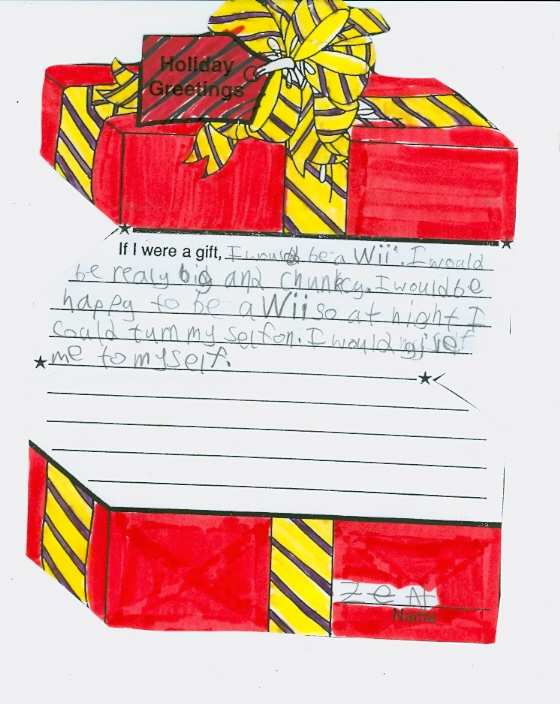 Holiday
Greetings
If I were a gift, I would be a Wii. I would
be realy big and chunkcy. I would be
happy to be a Wii so at night I
could turn my self on. I would
me to myself.
zen
Name